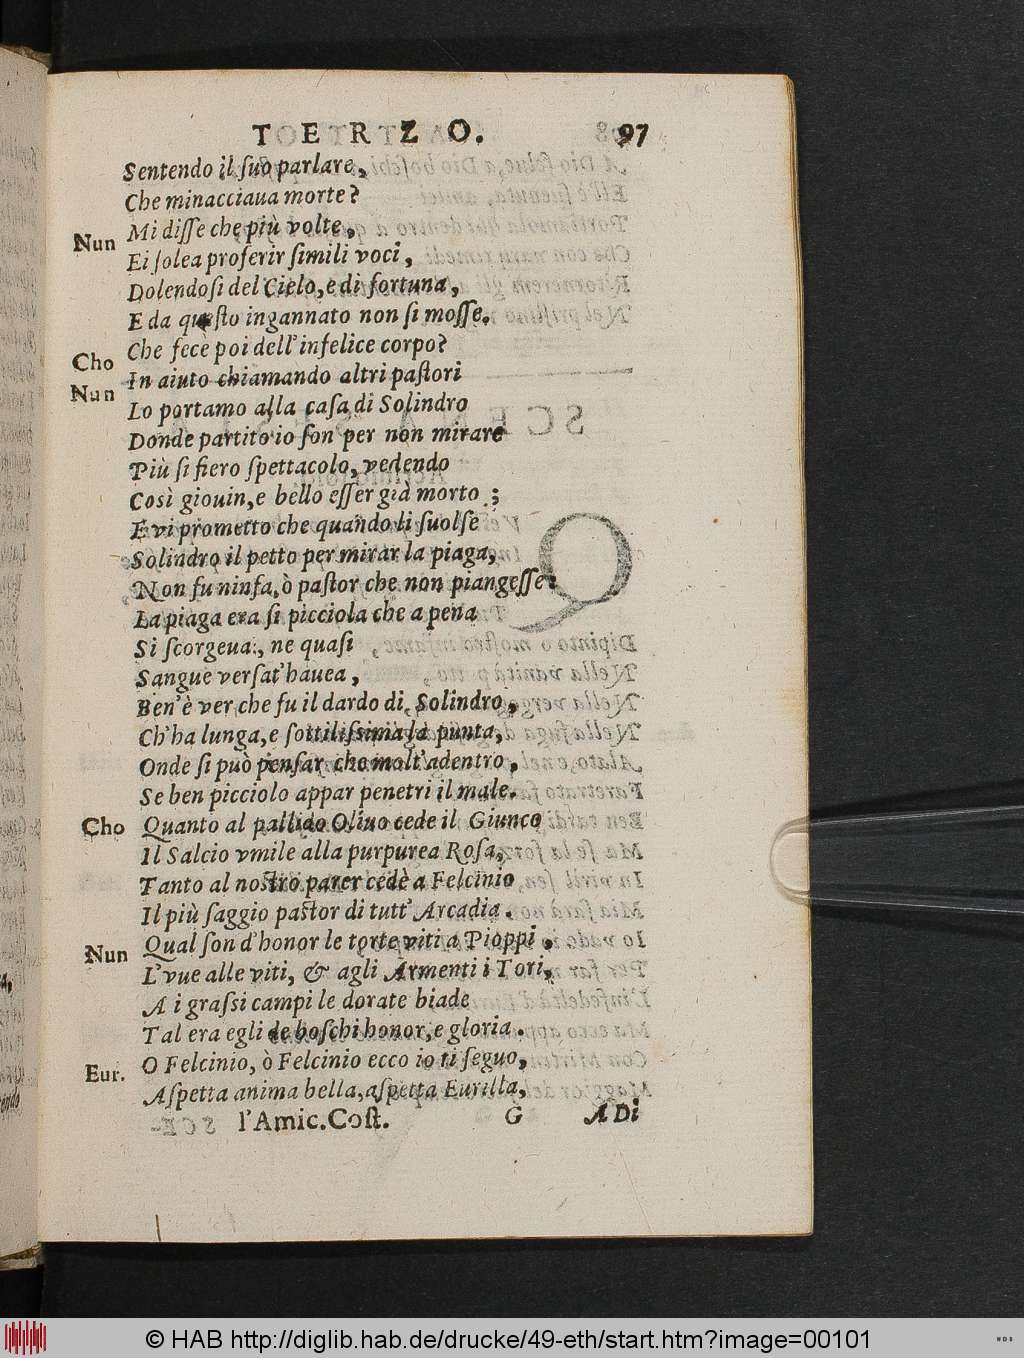 TERZO. 97
Sentendo il ſuo parlare,
Che minacciaua morte?
Nun Mi diſſe che più volte,
Ei ſolea proferir ſimili voci,
Dolendoſi del Cielo, e di fortuna,
E da queſto ingannato non ſi moſſe.
Cho Che fece poi dell'infelice corpo?
Nun In aiuto chiamando altri paſtori
Lo portamo alla caſa di Solindro
Donde partito io ſon per non mirare
Più ſi fiero ſpettacolo, vedendo
Così giouin, e bello eſſer già morto;
E vi prometto che quando li ſuolſe
Solindro il petto per mirar la piaga,
Non fu ninfa, ò paſtor che non piangeſſe:
La piaga era ſi picciola che a pena
Si ſcorgeua, ne quaſi
Sangue verſat'hauea,
Ben'è ver che fu il dardo di Solindro,
Ch'ha lunga, e ſottiliſsima la punta,
Onde ſi può penſar che molt'adentro,
Se ben picciolo appar penetri il male.
Cho Quanto al pallido Oliuo cede il Giunco
Il Salcio vmile alla purpurea Roſa,
Tanto al noſtro parer cedè a Felcinio
Il più ſaggio paſtor di tutt'Arcadia.
Nun Qual ſon d'honor le torte viti a Pioppi,
L'vue alle viti, & agli Armenti i Tori,
A i graſsi campi le dorate biade
Tal era egli de boſchi honor, e gloria.
Eur. O Felcinio, ò Felcinio ecco io ti ſeguo,
Aſpetta anima bella, aſpetta Eurilla,
l'Amic.Coſt. G A Di
© HAB http://diglib.hab.de/drucke/49-eth/start.htm?image=00101